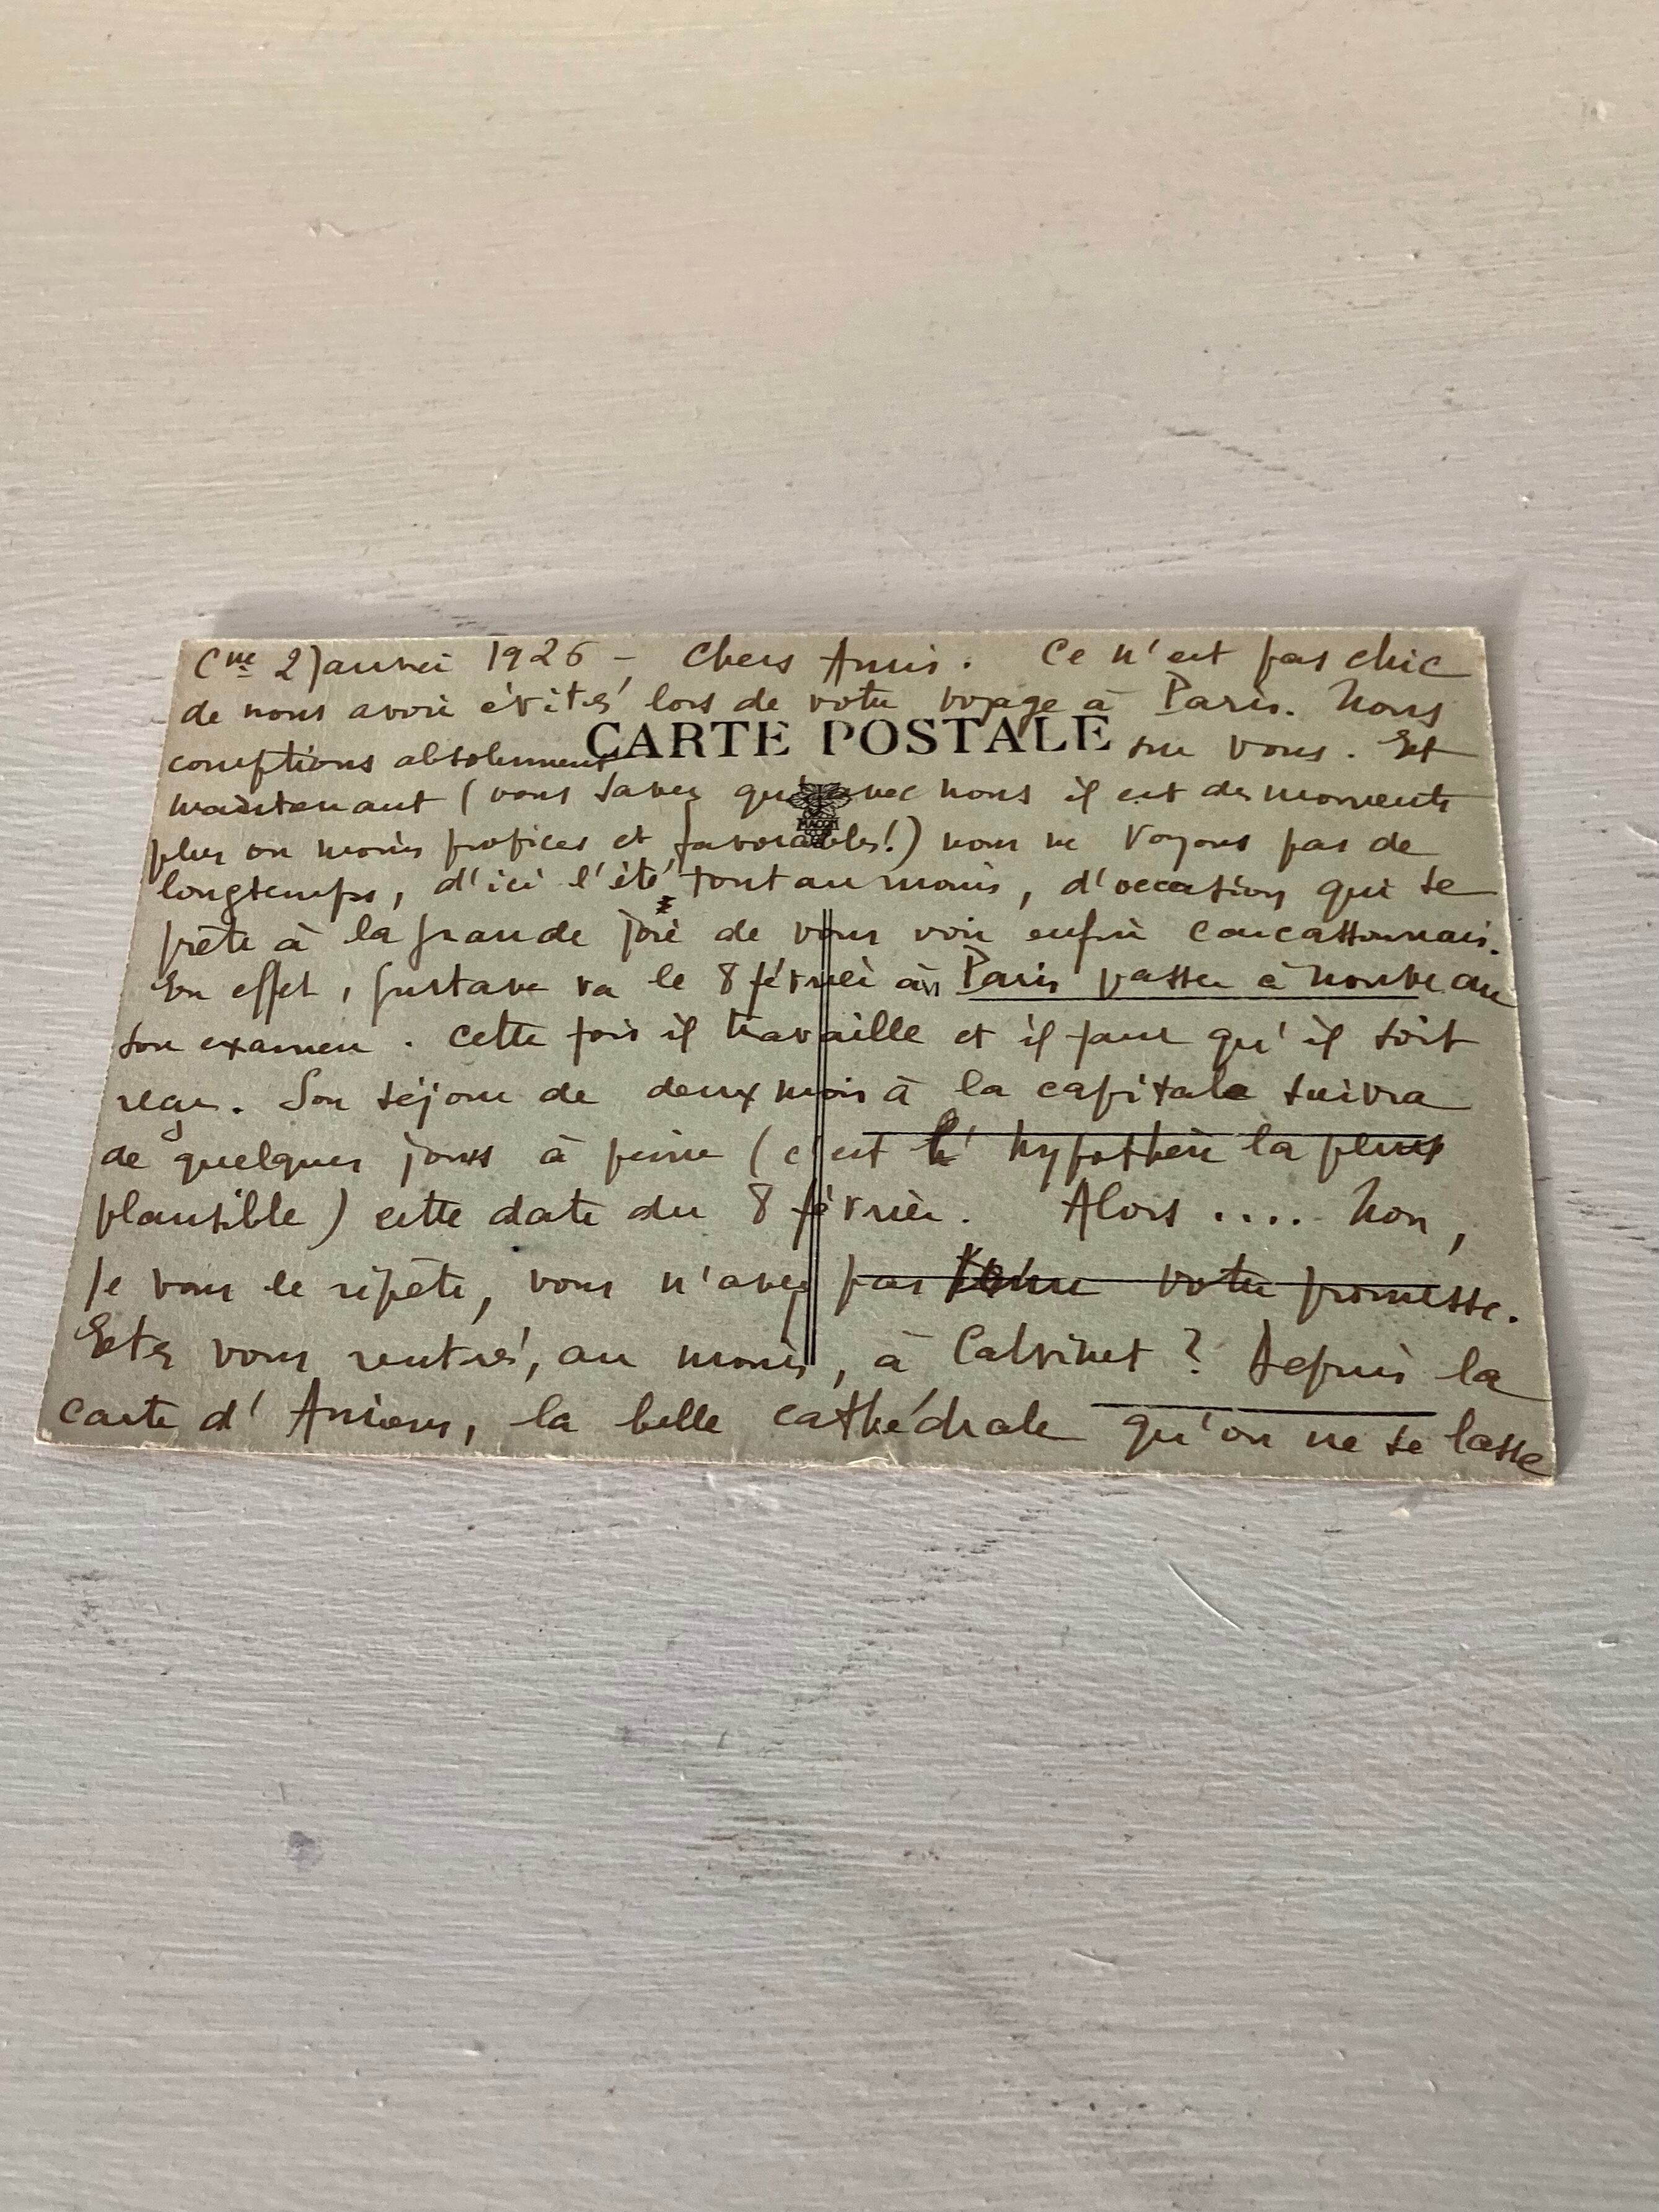 Cne 2 Janvier 1926 - Chers Amis. Ce n'est pas chic
de nous avoir évités lors de votre voyage à Paris. Nous
CARTE POSTALE
comptions absolument sur vous. Et
maintenant (vous savez qu'avec nous il est des moments
plus ou moins propices et favorables!) nous ne voyons pas de
longtemps, d'ici l'été tout au moins, d'occasion qui se
prête à la grande joie de vous voir enfin carcassonnais.
En effet, Gustave va le 8 février à Paris passer à nouveau
son examen. Cette fois il travaille et il faut qu'il soit
reçu. Son séjour de deux mois à la capitale suivra
de quelques jours à peine (c'est l'hypothèse la plus
plausible) cette date du 8 février. Alors .... Non,
je vous le répète, vous n'avez pas tenu votre promesse.
Etes vous rentrés, au moins, à Calvinet ? Depuis la
carte d'Amiens, la belle cathédrale qu'on ne se lasse